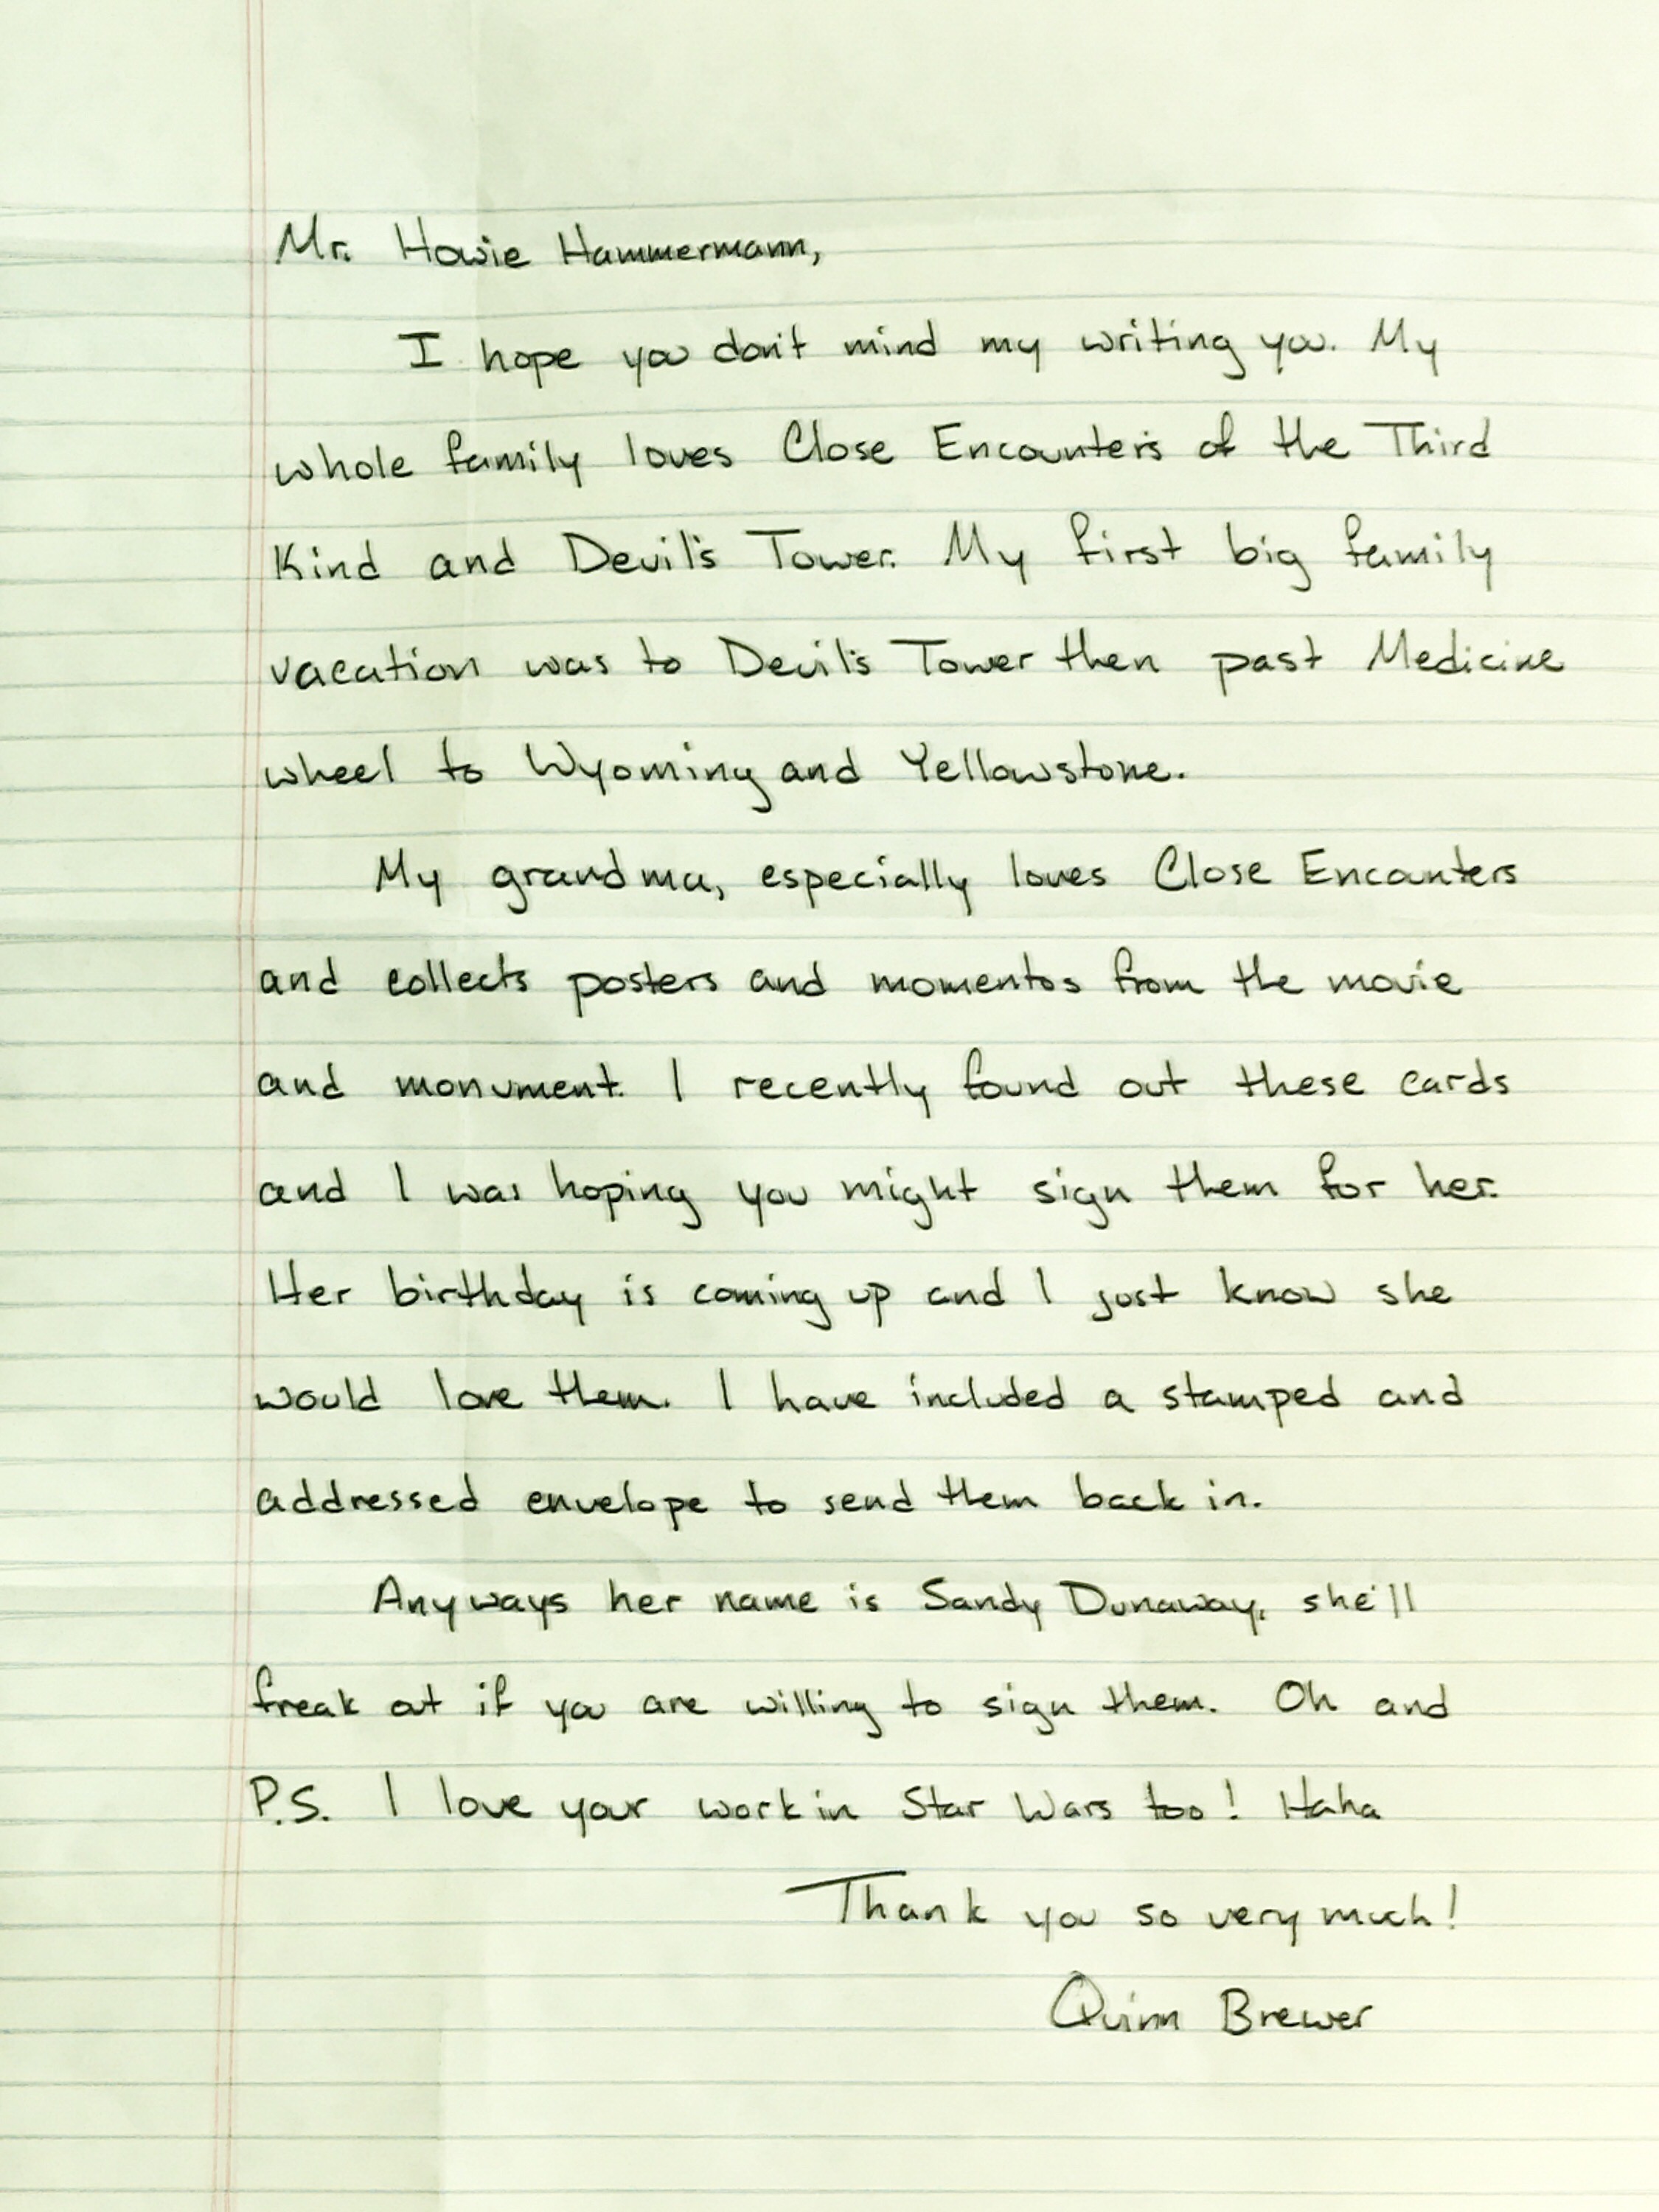 Mr. Howie Hammermann,
I hope you don't mind my writing you. My
whole family loves Close Encounters of the Third
Kind and Devil's Tower. My first big family
vacation was to Devil's Tower then past Medicine
wheel to Wyoming and Yellowstone.
My grandma, especially loves Close Encounters
and collects posters and momentos from the movie
and monument. I recently found out these cards
and I was hoping you might sign them for her.
Her birthday is coming up and I just know she
would love them. I have included a stamped and
addressed envelope to send them back in.
Anyways her name is Sandy Dunaway, she'll
freak out if you are willing to sign them. Oh and
P.S. I love your work in Star Wars too! Haha
Thank you so very much!
Quinn Brewer